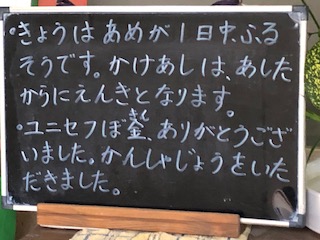 ・きょうはあめが1日中ふる
そうです。かけあしは、あした
からにえんきとなります。
・ユニセフぼ金、ありがとうござ
いました。かんしゃじょうをいた
だきました。